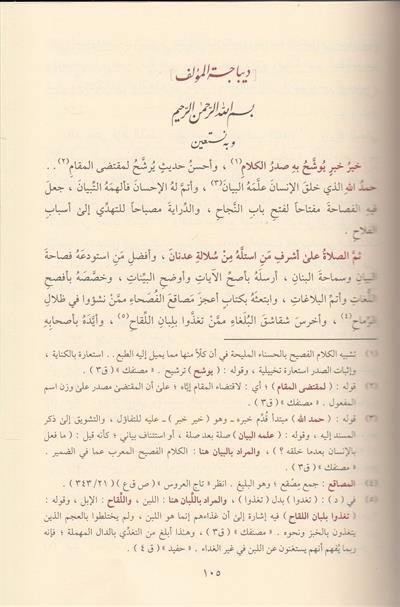 [ ديباجة المؤلف ]
بسم الله الرحمن الرحيم
وبه نستعين
خيرُ خبرٍ يُوشَّحُ بهِ صدرُ الكلامِ(١) ، وأحسنُ حديثٍ يُرشَّحُ لمقتضى المقامِ(٢) . .
حمدُ اللهِ الذي خلقَ الإنسانَ علَّمَهُ البيانَ(٣) ، وأتمَّ لهُ الإحسانَ فألهمَهُ التِّبيانَ ، جعلَ
فيهِ الفصاحةَ مفتاحاً لفتحِ بابِ النَّجاحِ ، والدِّرايةَ مصباحاً للتهدِّي إلى أسبابِ
الفلاحِ .
ثمَّ الصلاةُ على أشرفِ مَنِ استلَّهُ مِنْ سُلالةِ عدنانَ ، وأفضلِ مَنِ استودعَهُ فصاحةَ
البيانِ وسماحةَ البنانِ ، أرسلَهُ بأصحِّ الآياتِ وأوضحِ البيِّناتِ ، وخصَّصَهُ بأفصحِ
اللُّغاتِ وأتمِّ البلاغاتِ ، وابتعثَهُ بكتابٍ أعجزَ مَصاقعَ الفُصَحاءِ ممَّنْ نشؤوا في ظلالِ
الرِّماحِ(٤) ، وأخرسَ شقاشقَ البُلَغاءِ ممَّنْ تغذَّوا بلِبانِ اللِّقاحِ(٥) ، وأيَّدَهُ بأصحابِهِ
(١) تشبيه الكلام الفصيح بالحسناء المليحة في أن كلّاً منها مما يميل إليه الطبع . . استعارة بالكناية ،
وإثبات الصدر استعارة تخييلية ، وقوله : ( يوشح ) ترشيح . « مصنفك » ( ق٣ ) .
(٢) قوله : ( لمقتضى المقام ) ؛ أي : لاقتضاء المقام إيَّاه ؛ على أن المقتضى مصدر على وزن اسم
المفعول . « مصنفك » ( ق٣ ) .
(٣) قوله : ( حمد الله ) مبتدأ قُدِّم خبره ـ وهو ( خير خبر ) ـ عليه للتفاؤل ، والتشويق إلى ذكر
المسند إليه ، وقوله : ( علمه البيان ) صلة بعد صلة ، أو استئناف بياني ؛ كأنه قيل : ( ما فعل
بالإنسان بعدما خلقه ؟ ) ، والمراد بالبيان هنا : الكلام الفصيح المعرب عما في الضمير .
« مصنفك » ( ق٣ ) .
(٤) المصاقع : جمع مِصْقع ؛ وهو البليغ . انظر « تاج العروس » ( ص ق ع ) ( ٣٤٣/٢١ ) .
(٥) في ( د ) : ( تغدوا ) بدل ( تغذوا ) ، والمراد باللِّبان هنا : اللبن ، واللِّقاح : الإبل ، وقوله :
( تغذوا بلبان اللقاح ) فيه إشارة إلى أن غذاءهم إنما هو اللبن ، ولم يختلطوا بالعجم الذين
يتغذون بالخبز ونحوه . « مصنفك » ( ق٣ ) ، وهذا أبلغ من التغدِّي بالدال المهملة ؛ فإنه
ربما يُفهم أنهم يستغنون عن اللبن في غير الغداء . « حفيد » ( ق ٤ ) .
١٠٥